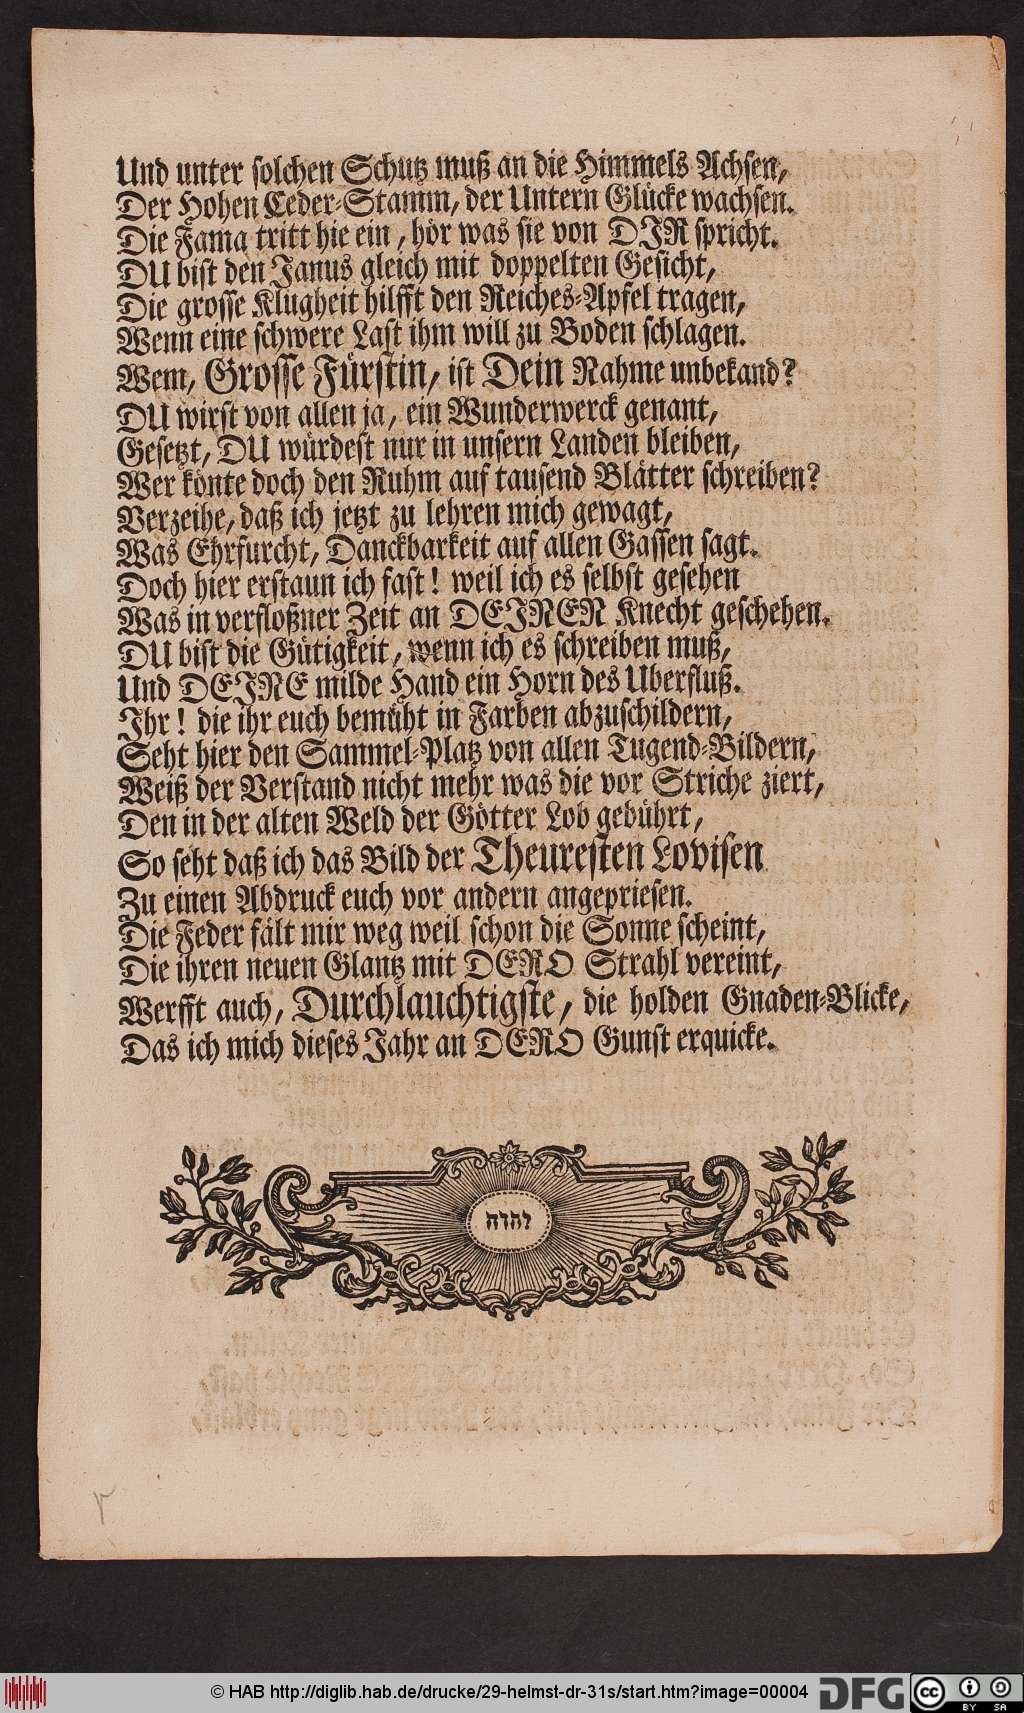 Und unter solchen Schutz muß an die Himmels Achsen,
Der Hohen Ceder-Stamm, der Untern Glücke wachsen.
Die Fama tritt hie ein, hör was sie von DJR spricht.
DU bist den Janus gleich mit doppelten Gesicht,
Die grosse Klugheit hilfft den Reiches-Apfel tragen,
Wenn eine schwere Last ihm will zu Boden schlagen.
Wem, Grosse Fürstin, ist Dein Nahme unbekand?
DU wirst von allen ja, ein Wunderwerck genant,
Gesetzt, DU würdest nur in unsern Landen bleiben,
Wer könte doch den Ruhm auf tausend Blätter schreiben?
Verzeihe, daß ich jetzt zu lehren mich gewagt,
Was Ehrfurcht, Danckbarkeit auf allen Gassen sagt.
Doch hier erstaun ich fast! weil ich es selbst gesehen
Was in verfloßner Zeit an DEJNEN Knecht geschehen.
DU bist die Gütigkeit, wenn ich es schreiben muß,
Und DEJNE milde Hand ein Horn des Uberfluß.
Jhr! die ihr euch bemüht in Farben abzuschildern,
Seht hier den Sammel-Platz von allen Tugend-Bildern,
Weiß der Verstand nicht mehr was die vor Striche ziert,
Den in der alten Weld der Götter Lob gebührt,
So seht daß ich das Bild der Theuresten Lovisen
Zu einen Abdruck euch vor andern angepriesen.
Die Feder fält mir weg weil schon die Sonne scheint,
Die ihren neuen Glantz mit DERO Strahl vereint,
Werfft auch, Durchlauchtigste, die holden Gnaden-Blicke,
Das ich mich dieses Jahr an DERO Gunst erquicke.
יהוה
© HAB http://diglib.hab.de/drucke/29-helmst-dr-31s/start.htm?image=00004
DFG
cc
BY
SA